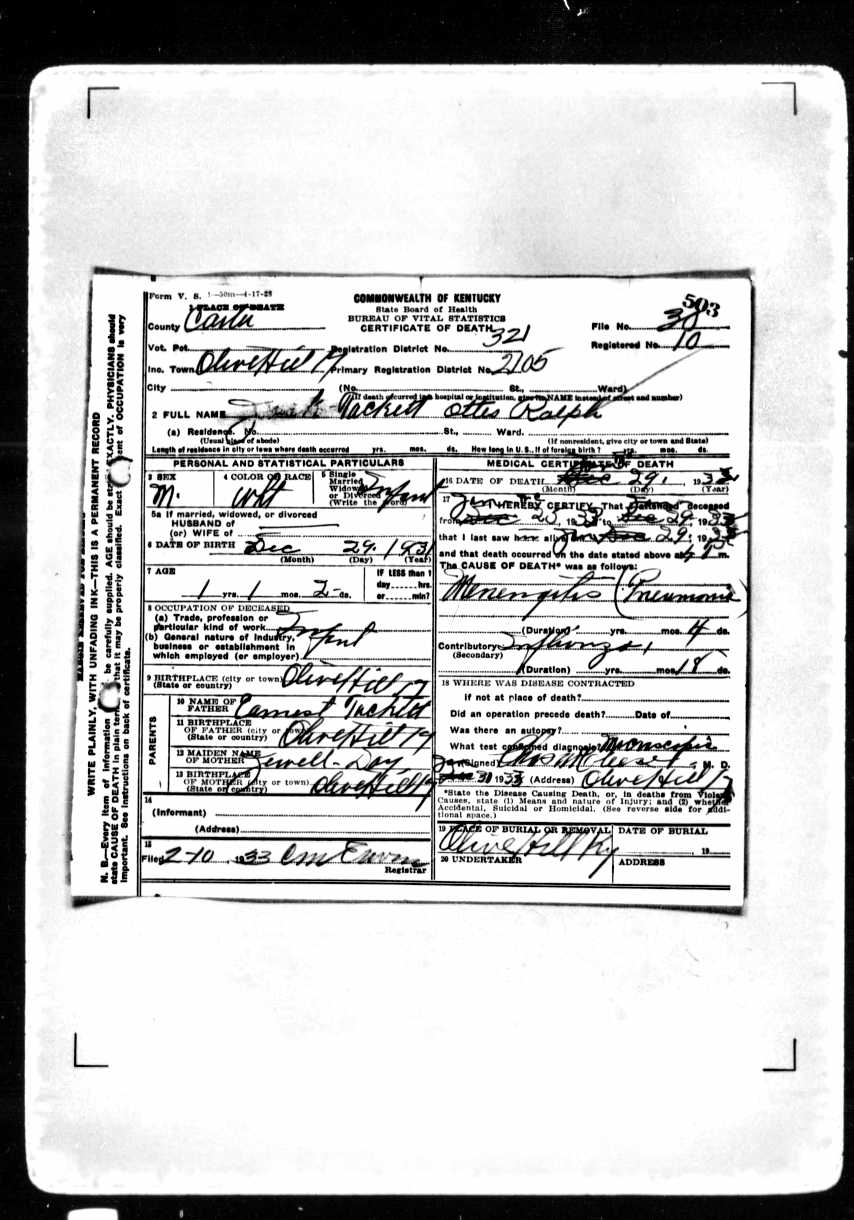 Form V. S. 1—50m—4-17-28
COMMONWEALTH OF KENTUCKY
State Board of Health
BUREAU OF VITAL STATISTICS
CERTIFICATE OF DEATH
503
File No. 30
Registered No. 10
1 PLACE OF DEATH
County Carter
Vot. Pct.
Registration District No. 321
Inc. Town Olive Hill Ky
Primary Registration District No. 2105
City (No. St., Ward)
(If death occurred in a hospital or institution, give its NAME instead of street and number)
2 FULL NAME Tackett Ottis Ralph
(a) Residence. No. St., Ward.
(Usual place of abode) (If nonresident, give city or town and State)
Length of residence in city or town where death occurred yrs. mos. ds. How long in U. S., if of foreign birth? yrs. mos. ds.
PERSONAL AND STATISTICAL PARTICULARS
3 SEX
M.
4 COLOR OR RACE
Wht
5 Single
Married
Widowed
or Divorced
(Write the word)
Infant
5a If married, widowed, or divorced
HUSBAND of
(or) WIFE of
6 DATE OF BIRTH Dec 29, 1931
(Month) (Day) (Year)
7 AGE
1 yrs. 1 mos. 2 ds.
IF LESS than 1
day hrs.
or min?
8 OCCUPATION OF DECEASED
(a) Trade, profession or
particular kind of work
(b) General nature of Industry,
business or establishment in
which employed (or employer)
Infant
9 BIRTHPLACE (city or town) Olive Hill Ky
(State or country)
PARENTS
10 NAME OF
FATHER Earnest Tackett
11 BIRTHPLACE
OF FATHER (city or town) Olive Hill Ky
(State or country)
12 MAIDEN NAME
OF MOTHER Jewell Day
13 BIRTHPLACE
OF MOTHER (city or town) Olive Hill Ky
(State or country)
14
(Informant)
(Address)
15
Filed 2-10, 1933 Registrar
MEDICAL CERTIFICATE OF DEATH
16 DATE OF DEATH Dec 29, 193
(Month) (Day) (Year)
17
I HEREBY CERTIFY, That I attended deceased
from 193 to 29, 193
that I last saw h alive 29, 193
and that death occurred on the date stated above at m.
The CAUSE OF DEATH* was as follows:
Menengitis (Pneumonia)
(Duration) yrs. mos. 4 ds.
Contributory Influenza,
(Secondary)
(Duration) yrs. mos. 18 ds.
18 WHERE WAS DISEASE CONTRACTED
If not at place of death?
Did an operation precede death? Date of
Was there an autopsy?
What test confirmed diagnosis? Microscopic
(Signed) M. D.
31 1933 (Address) Olive Hill Ky
*State the Disease Causing Death, or, in deaths from Violent
Causes, state (1) Means and nature of Injury; and (2) whether
Accidental, Suicidal or Homicidal. (See reverse side for addi-
tional space.)
19 PLACE OF BURIAL OR REMOVAL
Olive Hill Ky
DATE OF BURIAL
19
20 UNDERTAKER
ADDRESS
WRITE PLAINLY, WITH UNFADING INK—THIS IS A PERMANENT RECORD
N. B.—Every item of information be carefully supplied. AGE should be stated EXACTLY. PHYSICIANS should
state CAUSE OF DEATH in plain terms, that it may be properly classified. Exact statement of OCCUPATION is very
important. See instructions on back of certificate.